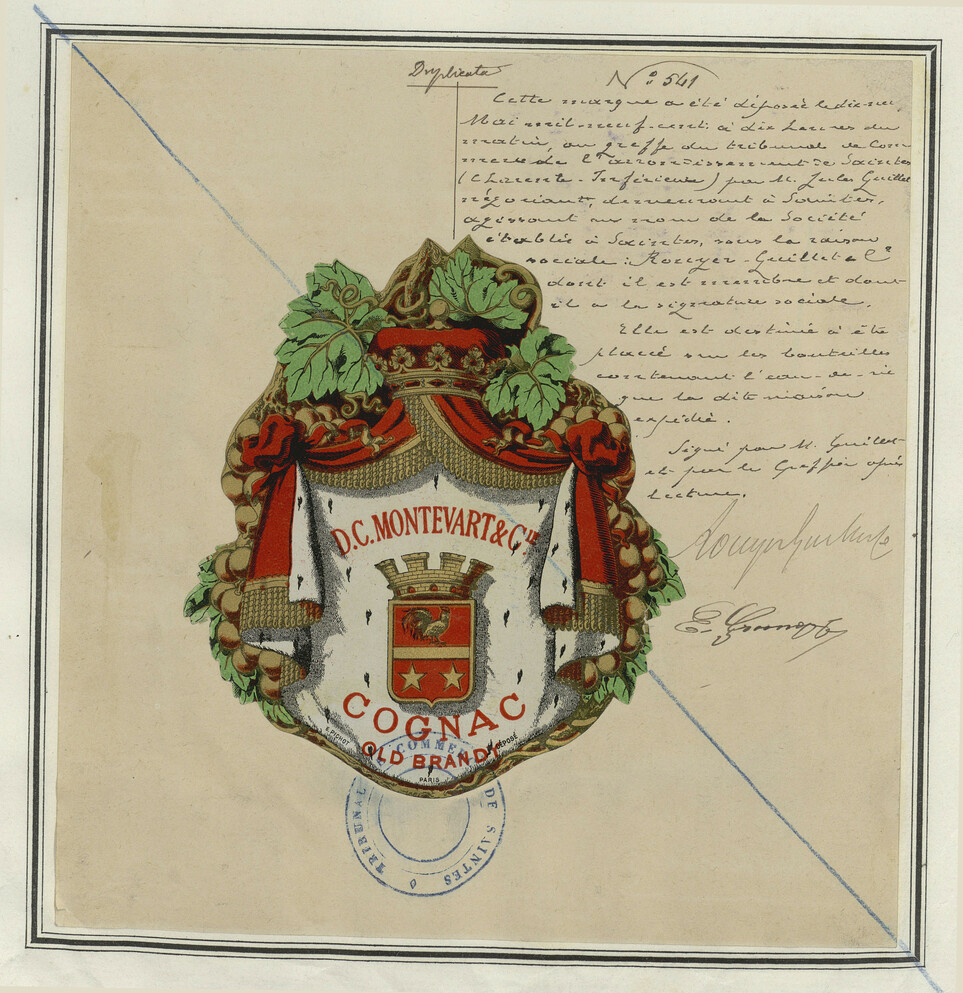 Duplicata
N° 541
Cette marque a été déposée le dix-neuf
Mai mil-neuf-cent à dix heures du
matin, au greffe du tribunal de Com-
merce de l'arrondissement de Saintes
(Charente-Inférieure) par M. Jules Guillet
négociant, demeurant à Saintes,
agissant au nom de la Société
établie à Saintes, sous la raison
sociale : Rouyer-Guillet & Cie
dont il est membre et dont
il a la signature sociale.
Elle est destinée à être
placée sur les bouteilles
contenant l'eau-de-vie
que la dite maison
expédie.
Signé par M. Guillet
et par le Greffier après
lecture.
Rouyer Guillet & Cie
D.C. MONTEVART & CIE
COGNAC
OLD BRANDY
E. PICHOT
PARIS
DÉPOSÉ
TRIBUNAL DE COMMERCE DE SAINTES